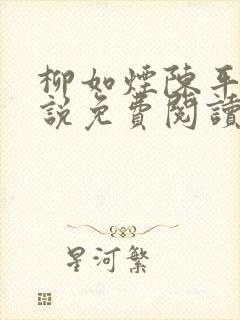 柳如煙陳平
說免費閱讀
星河繁